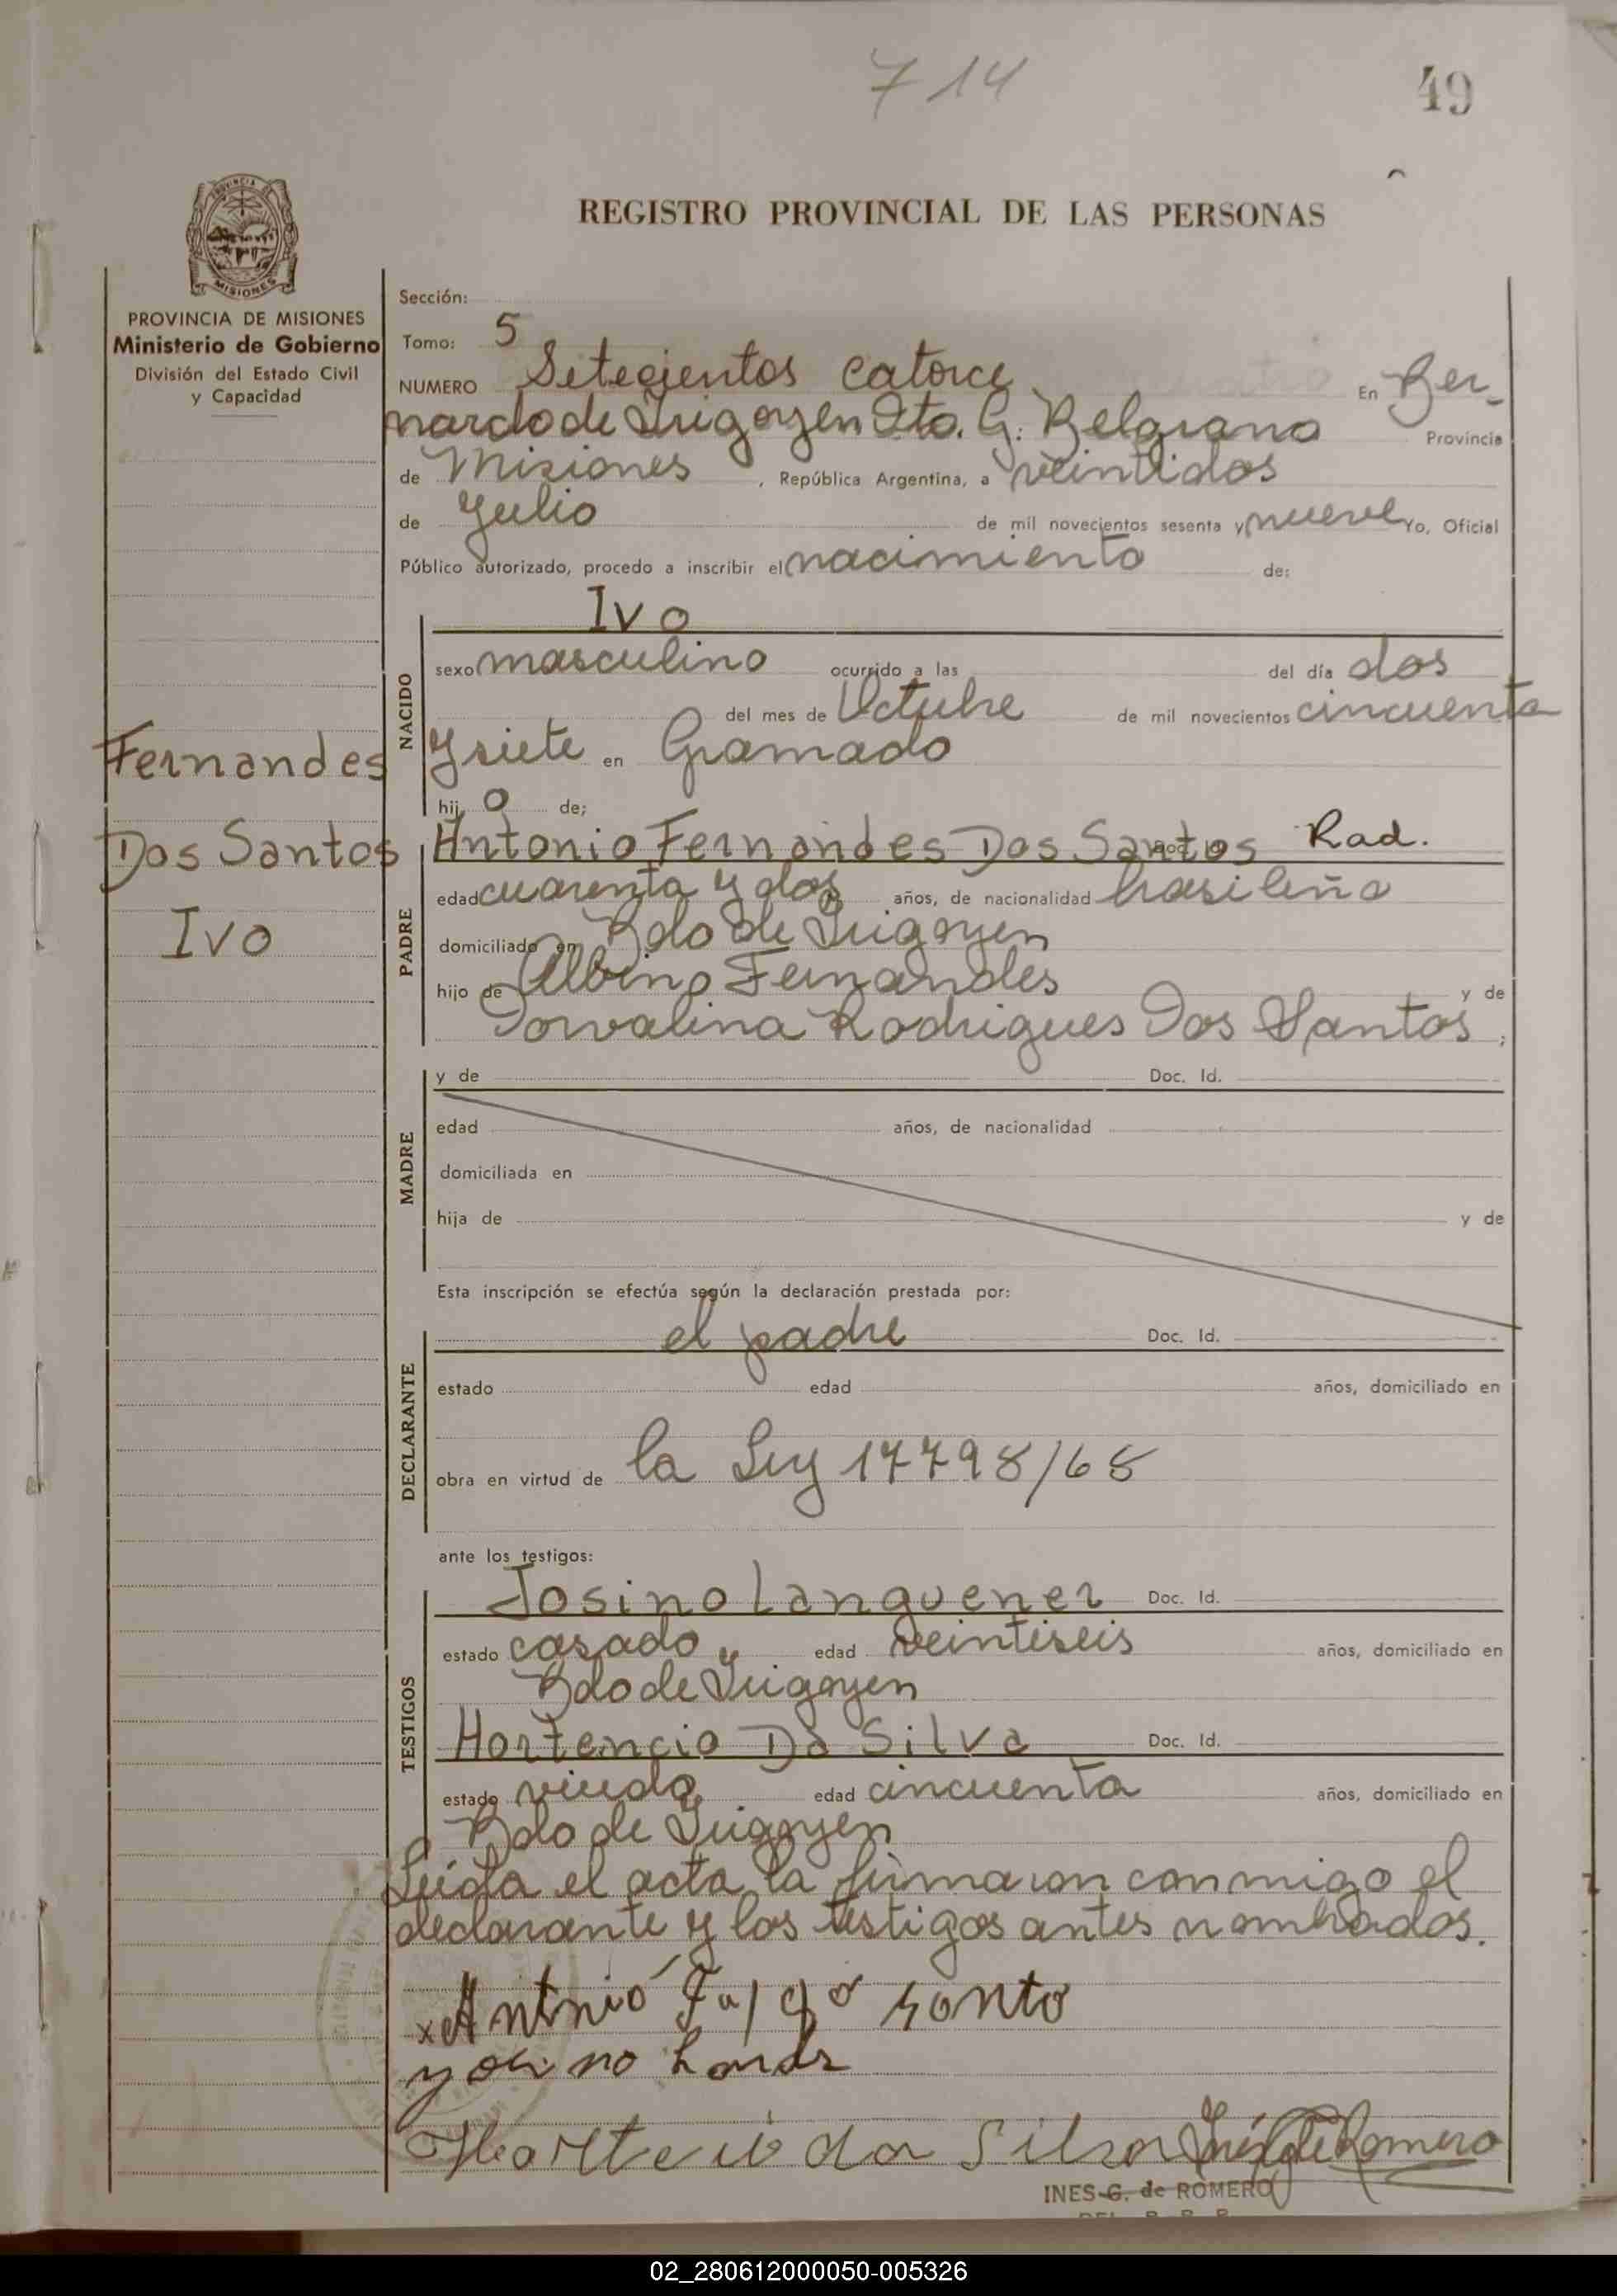 714
49
REGISTRO PROVINCIAL DE LAS PERSONAS
PROVINCIA DE MISIONES
MISIONES
PROVINCIA DE MISIONES
Ministerio de Gobierno
División del Estado Civil
y Capacidad
Sección:
Tomo: 5
NUMERO Setecientos catorce En Ber-
nardo de Irigoyen Dto. G. Belgrano Provincia
de Misiones, República Argentina, a veintidos
de Julio de mil novecientos sesenta y nueve Yo, Oficial
Público autorizado, procedo a inscribir el nacimiento de:
Fernandes
Dos Santos
Ivo
NACIDO
Ivo
sexo masculino ocurrido a las del día dos
del mes de Octubre de mil novecientos cincuenta
y siete en Gramado
hij o de;
PADRE
Antonio Fernandes Dos Santos Rad.
edad cuarenta y dos años, de nacionalidad brasileña
domiciliado en Bdo de Irigoyen
hijo de Albino Fernandes y de
Dorvalina Rodrigues Dos Santos ;
MADRE
y de Doc. Id.
edad años, de nacionalidad
domiciliada en
hija de y de
Esta inscripción se efectúa según la declaración prestada por:
DECLARANTE
el padre Doc. Id.
estado edad años, domiciliado en
obra en virtud de la Ley 17798/68
ante los testigos:
TESTIGOS
Josino Languener Doc. Id.
estado casado edad veintiseis años, domiciliado en
Bdo de Irigoyen
Hortencio Da Silva Doc. Id.
estado viudo edad cincuenta años, domiciliado en
Bdo de Irigoyen
Leída el acta la firmaron conmigo el
declarante y los testigos antes nombrados.
x Antonio
da Silva Inés G de Romero
INES G. de ROMERO
02_280612000050-005326